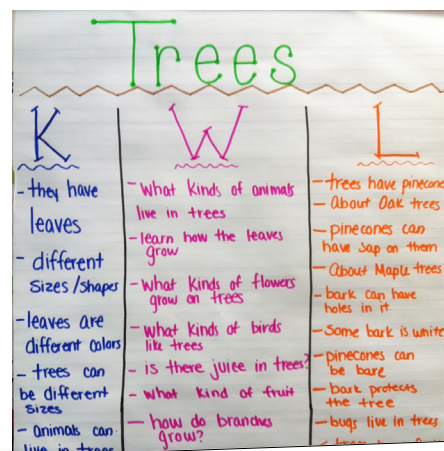 Trees
K
- they have
leaves
- different
sizes/shapes
- leaves are
different colors
- trees can
be different
sizes
- animals can
live in trees
W
- What kinds of animals
live in trees
- learn how the leaves
grow
- what kinds of flowers
grow on trees
- what kinds of birds
like trees
- is there juice in trees?
- what kind of fruit
- how do branches
grow?
L
- trees have pinecone
- About Oak trees
- pinecones can
have sap on them
- About Maple trees
- bark can have
holes in it
- Some bark is white
- pinecones can
be bare
- bark protects
the tree
- bugs live in trees